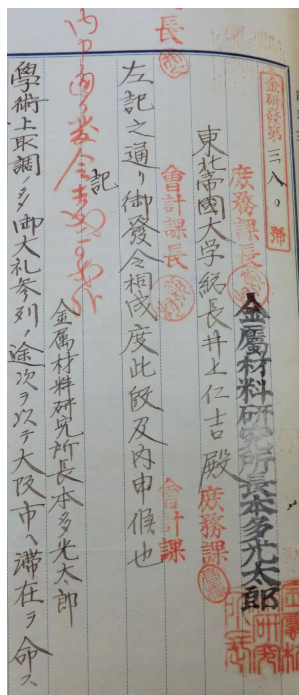 金研發第三八〇號
金屬材料研究所長本多光太郎
庶務課長
庶務課
東北帝國大学総長井上仁吉殿
會計課長
會計課
左記之通リ御發令相成度此段及内申候也
長
記
金属材料研究所長本多光太郎
學術上取調ノタメ御大礼参列ノ途次ヲ以テ大阪市ヘ滞在ヲ命ス